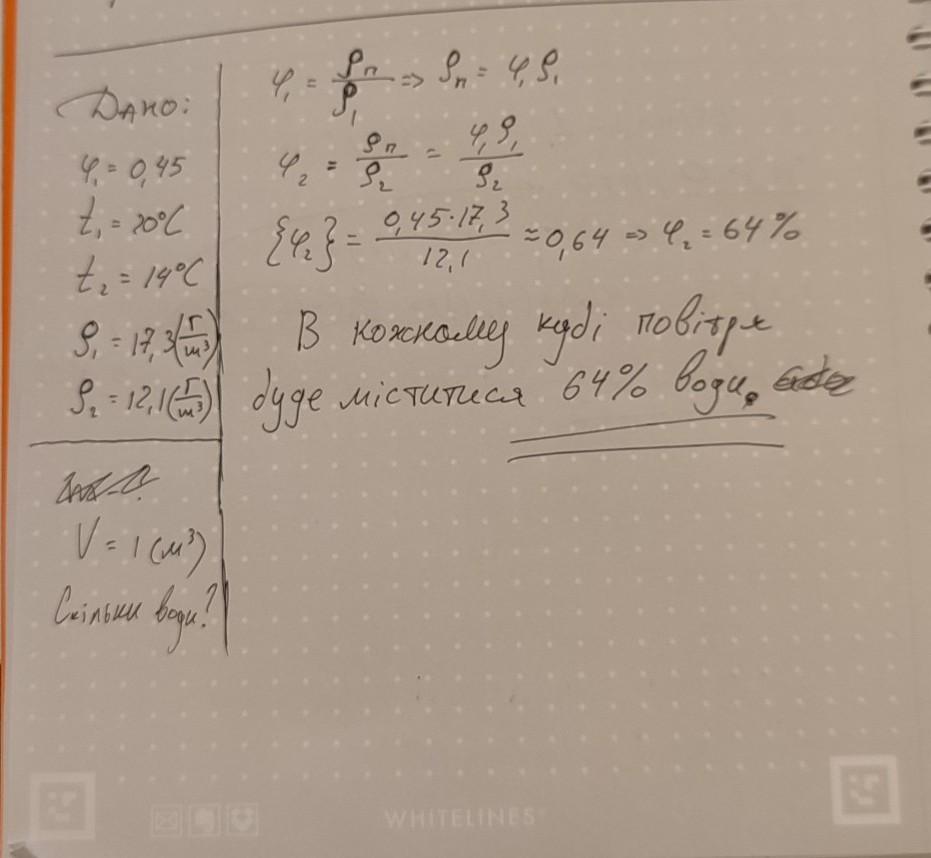 Дано:
φ₁ = 0,45
t₁ = 20°C
t₂ = 14°C
ρ₁ = 17,3 (г/м³)
ρ₂ = 12,1 (г/м³)
V = 1 (м³)
Скільки води?
φ₁ = ρп/ρ₁ => ρп = φ₁ρ₁
φ₂ = ρп/ρ₂ = φ₁ρ₁/ρ₂
{φ₂} = 0,45·17,3/12,1 ≈ 0,64 => φ₂ = 64%
В кожному кубі повітря
буде міститися 64% води.
WHITELINES®